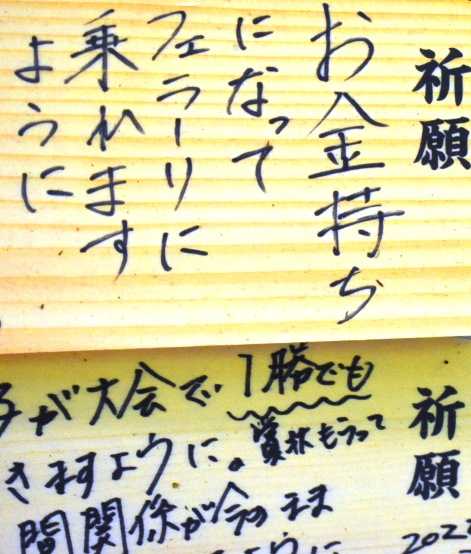 祈願
お金持ち
になって
フェラーリに
乗れます
ように
祈願
が大会で1勝でも
賞状もらって
きますように。
間関係が今のまま
ように
202